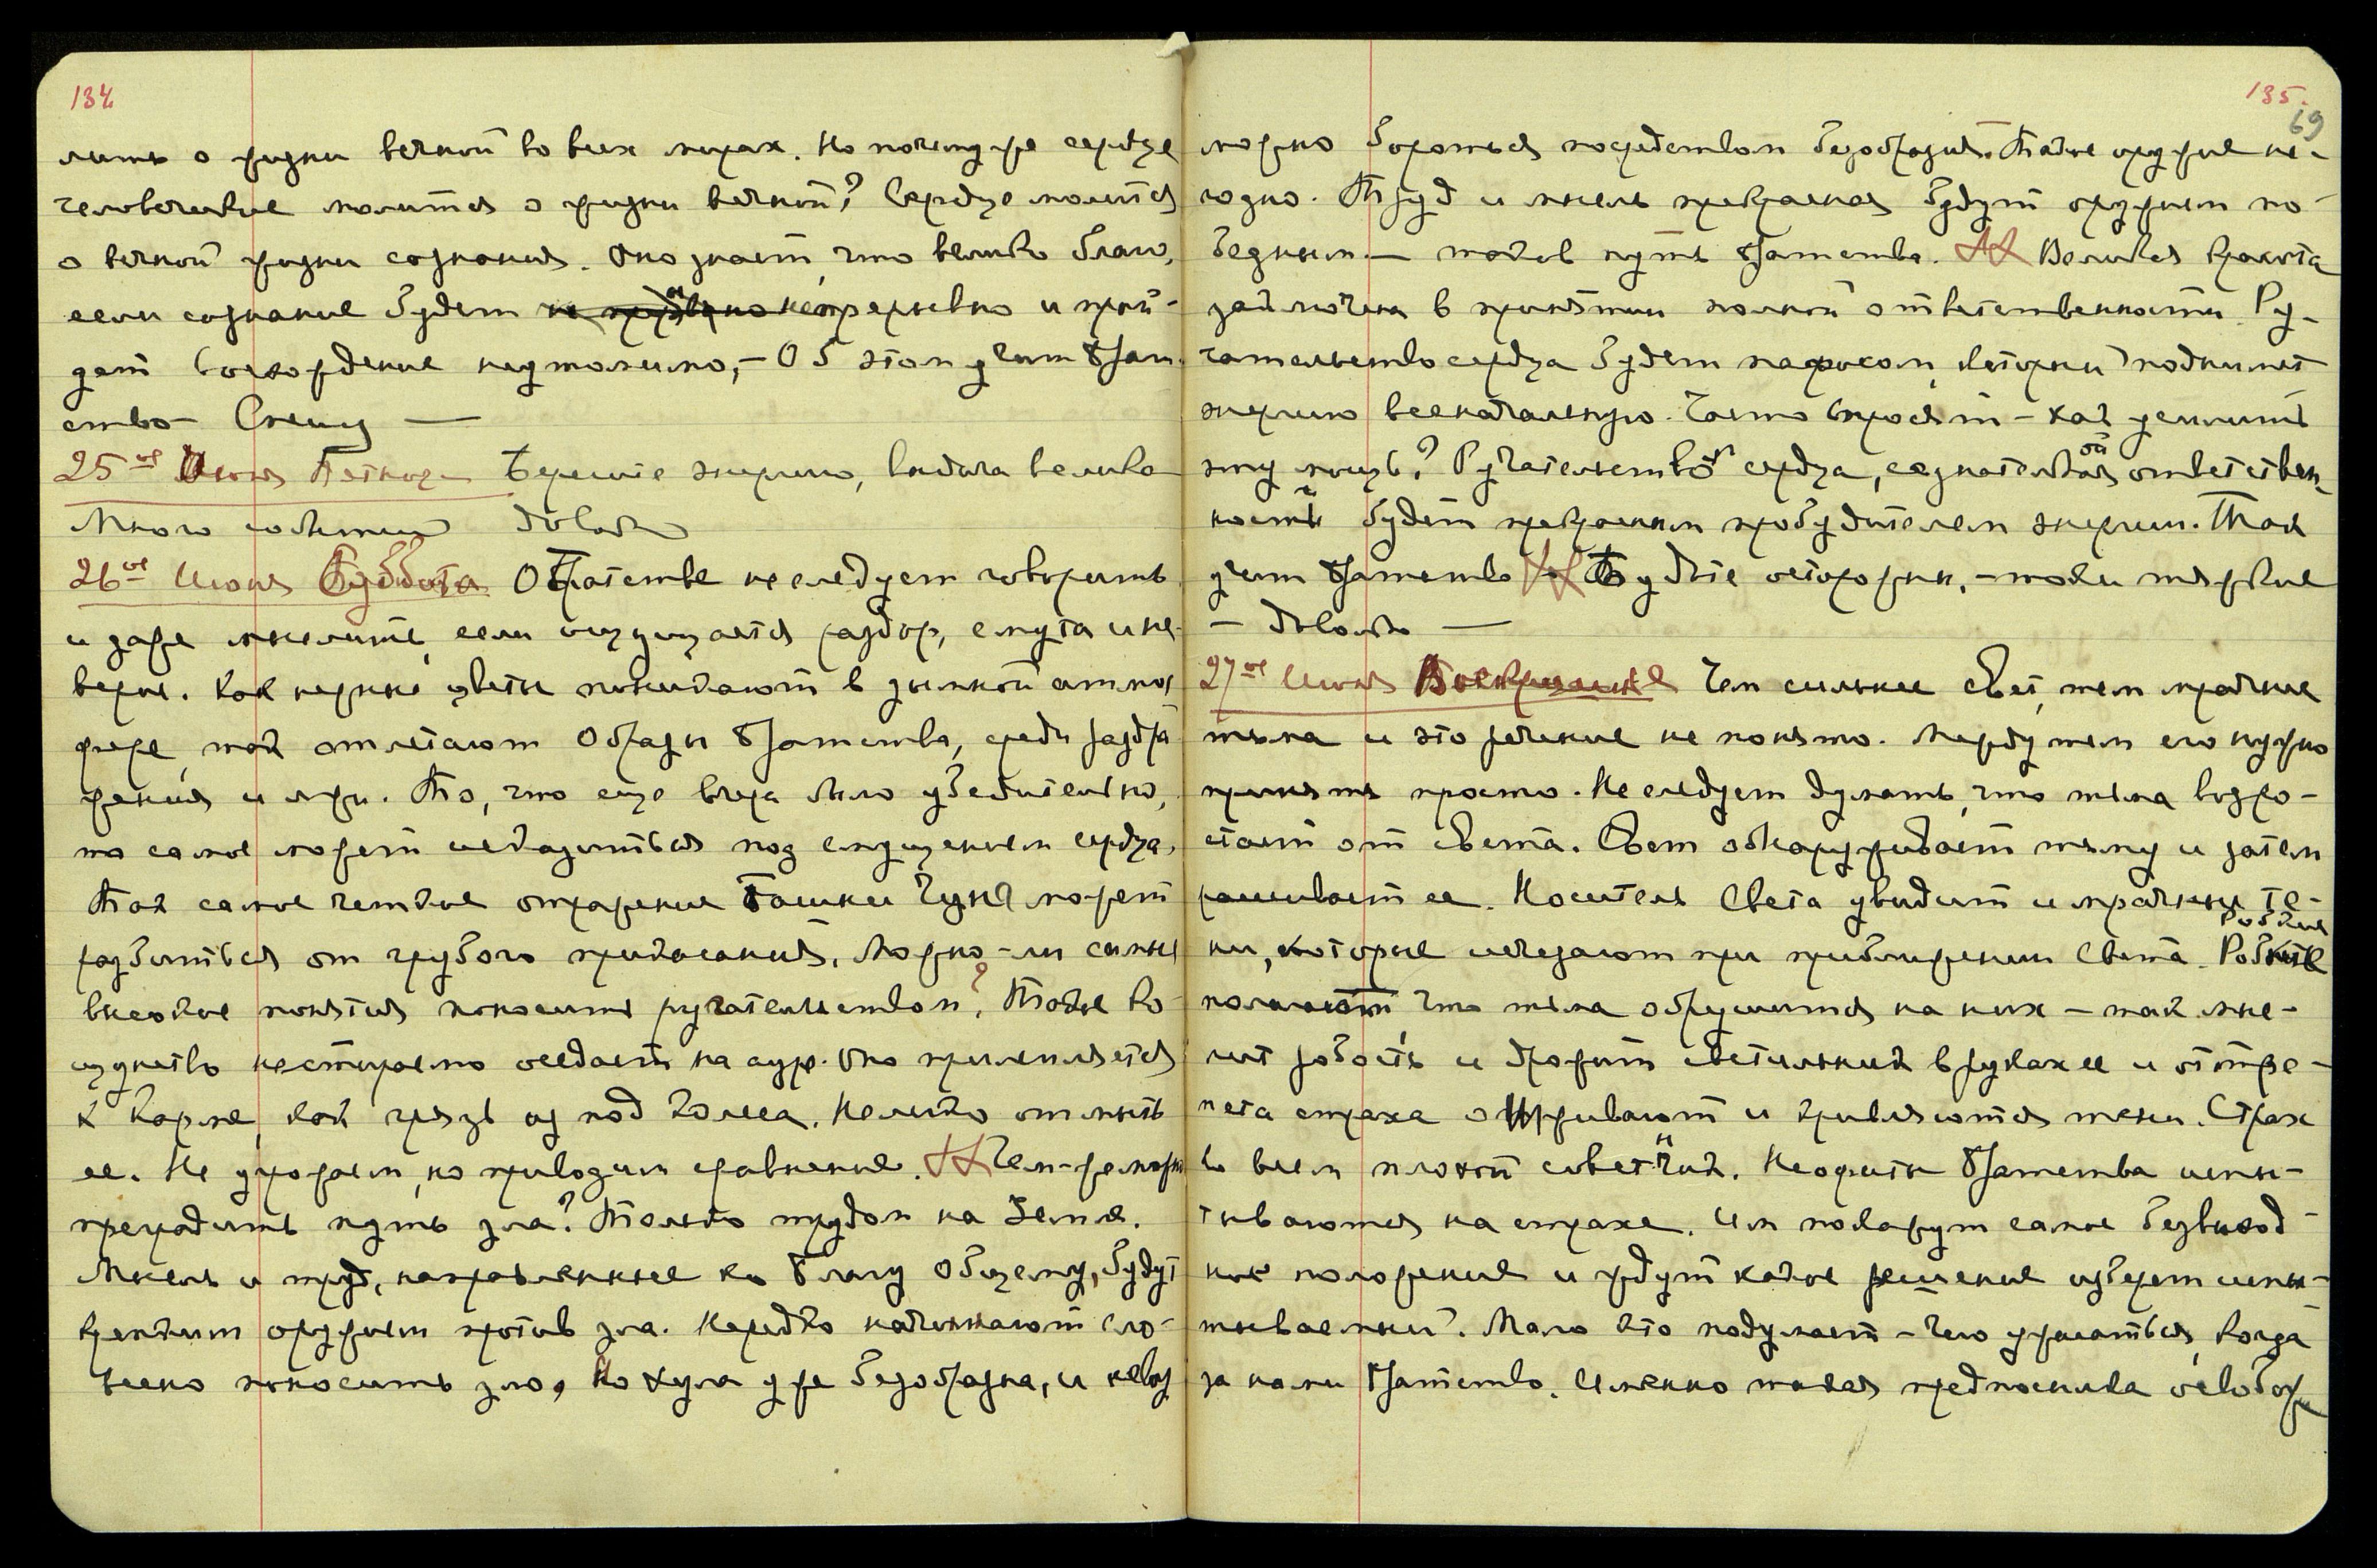 134
лить о жизни вечной во всех мирах. Но почему же сердце
человеческое молится о жизни вечной? Сердце молится
о вечной жизни сознания. Оно знает, что велико благо,
если сознание будет непрерывно и прой-
дет восхождение неутомимо, – Об этом учит Брат
ство – Спешу —
25ое Июня Пятница Берегите энергию, выдача велика
Много событий Довольно
26ое Июня Суббота О Братстве не следует говорить
и даже мыслить, если ощущается раздор, смута и не-
верие. Как нежные цветы поникают в дымной атмос
фере, так отлетают Образы Братства, среди раздра
жения и лжи. То, что еще вчера было убедительно,
то самое может исказиться под смущением сердца.
Так самое четкое отражение Башни Чунг может
разбиться от грубого прикасания. Можно-ли самые
высокие понятия поносить ругательством? Такое ко-
щунство нестираемо оседает на ауре. Оно прилепляется
к Карме, как грязь из под колеса. Нелегко отмыть
ее. Не угрожаем, но приводим сравнение. Чем-же можно
преградить путь зла? Только трудом на Земле.
Мысль и труд, направленные ко Благу Общему, будут
крепким оружием против зла. Нередко начинают сло-
весно поносить зло, Но хула уже безобразна, и невоз
135.
69
можно бороться посредством безобразия. Такое оружие не-
годно. Труд и мысль прекрасная будут оружием по-
бедным – таков путь Братства. Великая красота
заключена в принятии полной ответственности. Ру-
чательство сердца будет пафосом, который поднимет
энергию всеначальную. Часто спросят – как усилить
эту мощь? Ручательством сердца, сознательной ответствен
ностью будет прекрасным пробудителем энергии. Так
учит Братство Будьте осторожны, – токи тяжкие
– Довольно —
27ое Июня Воскресенье Чем сильнее свет, тем мрачнее
тьма и это речение не понято. Между тем его нужно
принять просто. Не следует думать, что тьма возра-
стает от света. Свет обнаруживает тьму и затем
рассеивает ее. Носитель Света увидит и мрачные те-
ни, которые исчезают при приближении Света. Робкие
полагают, что тьма обрушится на них – так мыс-
лит робость и дрожит светильник в руках ее и от тре-
пета страха оживают и кривляются тени. Страх
во всем плохой советчик. Неофиты Братства испы-
тываются на страхе. Им покажут самое безвыход-
ное положение и ждут какое решение изберет испы-
тываемый. Мало кто подумает – Чего ужасаться, когда
за нами Братство. Именно такая предпосылка освобож